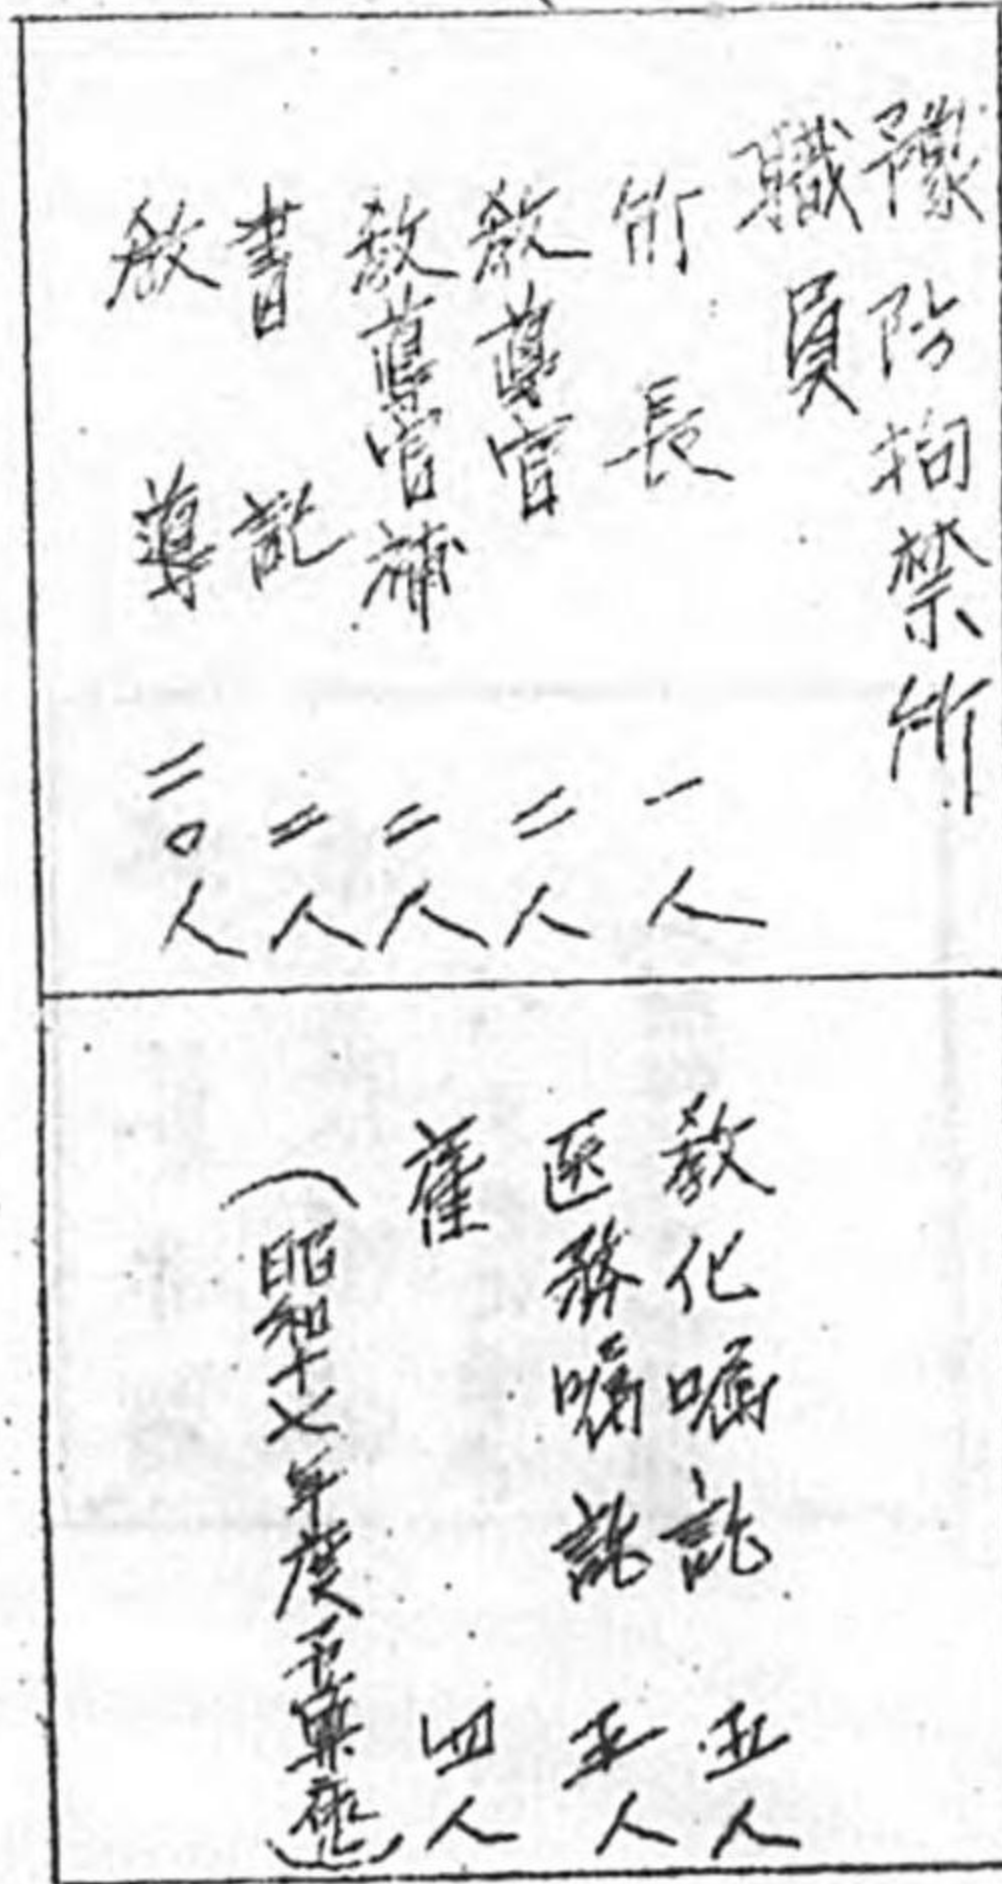 豫防拘禁所
職員
所長 一人
教導官 二人
教導官補 二人
書記 二人
教導 二〇人
教化嘱託 五人
医務嘱託 五人
雇 四人
(昭和十七年度予算